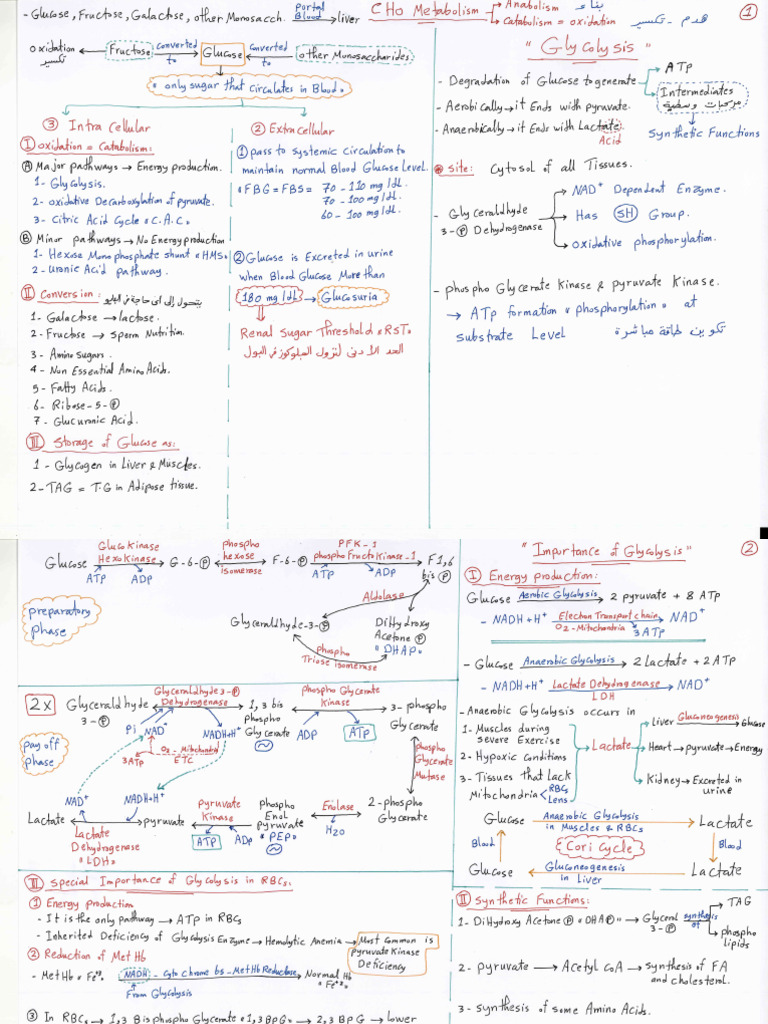 - Glucose, Fructose, Galactose, other Monosacch. Portal Blood → liver
CHO Metabolism → Anabolism = بناء
→ Catabolism = oxidation هدم - تكسير
1
oxidation تكسير ← Fructose converted to → Glucose ← converted to other Monosaccharides.
" only sugar that circulates in Blood "
③ Intra Cellular
I oxidation = Catabolism:
A Major pathways → Energy production.
1- Glycolysis.
2- oxidative Decarboxylation of pyruvate.
3- Citric Acid Cycle " C.A.C "
B Minor pathways → No Energy production
1- Hexose Mono phosphate shunt " HMS "
2- Uronic Acid pathway.
II Conversion :
1- Galactose → lactose.
2- Fructose → sperm Nutrition.
3- Amino sugars.
4- Non Essential Amino Acids.
5- Fatty Acids.
6- Ribose-5-P
7- Glucuronic Acid.
III Storage of Glucose as:
1- Glycogen in Liver & Muscles.
2- TAG = T.G in Adipose tissue.
② Extra cellular
① pass to systemic Circulation to
maintain normal Blood Glucose Level.
" FBG = FBS = 70 - 110 mg/dL
70 - 100 mg/dL
60 - 100 mg/dL
② Glucose is Excreted in urine
when Blood Glucose More than
180 mg/dL → Glucosuria
Renal Sugar Threshold " RST "
الحد الادنى لنزول الجلوكوز في البول
" Glycolysis "
- Degradation of Glucose to generate → ATP
→ Intermediates مركبات وسطية
- Aerobically → it Ends with pyruvate.
- Anaerobically → it Ends with Lactate Acid
Synthetic Functions
* site: Cytosol of all Tissues.
- Glyceraldhyde 3-P Dehydrogenase
→ NAD+ Dependent Enzyme.
→ Has SH Group.
→ oxidative phosphorylation.
- phospho Glycerate Kinase & pyruvate Kinase.
→ ATP formation " phosphorylation " at
substrate Level تكوين طاقة مباشرة
2
Glucose → Glucokinase Hexokinase ATP ADP → G-6-P ⇌ phospho hexose isomerase ⇌ F-6-P → PFK-1 phosphofructokinase-1 ATP ADP → F1,6 bis P
Aldolase
Glyceraldhyde-3-P
Dihydroxy Acetone P " DHAP "
Phospho Triose isomerase
preparatory phase
2x Glyceraldhyde 3-P ⇌ Glyceraldhyde 3-P Dehydrogenase ⇌ 1,3 bis phospho Glycerate ⇌ phospho Glycerate Kinase ⇌ 3-phospho Glycerate
Pi NAD+ NADH+H+ ADP ATP
pay off phase
3ATP O2 - Mitochondria ETC
phospho Glycerate Mutase
NAD+ NADH+H+
Lactate ← pyruvate ← pyruvate Kinase ← Phospho Enol pyruvate " PEP " ← Enolase ← 2-phospho Glycerate
Lactate Dehydrogenase " LDH "
ATP ADP H2O
III special Importance of Glycolysis in RBCs.
① Energy production
- It is the only pathway → ATP in RBCs
- Inherited Deficiency of Glycolysis Enzyme → Hemolytic Anemia → Most common is pyruvate Kinase Deficiency
② Reduction of Met Hb
- Met Hb " Fe+3 " NADH - Cyto chrome b5 - Met Hb Reductase → Normal Hb " Fe+2 "
From Glycolysis
③ In RBCs → 1,3 Bis phospho Glycerate " 1,3 BPG " → 2,3 BPG → lower
" Importance of Glycolysis "
I Energy production:
Glucose Aerobic Glycolysis → 2 pyruvate + 8 ATP
- NADH+H+ Electron Transport chain O2 - Mitochondria → NAD+
3ATP
- Glucose Anaerobic Glycolysis → 2 Lactate + 2 ATP
- NADH+H+ Lactate Dehydrogenase LDH → NAD+
- Anaerobic Glycolysis occurs in
1- Muscles during severe Exercise
2- Hypoxic Conditions
3- Tissues that Lack Mitochondria < RBCs Lens
Lactate
→ Liver Gluconeogenesis → Glucose
→ Heart → pyruvate → Energy
→ Kidney → Excreted in urine
Glucose Anaerobic Glycolysis in Muscles & RBCs → Lactate
Blood Cori Cycle Blood
Glucose ← Gluconeogenesis in Liver Lactate
II Synthetic Functions:
1- Dihydroxy Acetone P " DHAP " → Glycerol 3-P synthesis of → TAG
→ phospho lipids
2- pyruvate → Acetyl CoA → synthesis of FA
and cholesterol.
3- synthesis of some Amino Acids.